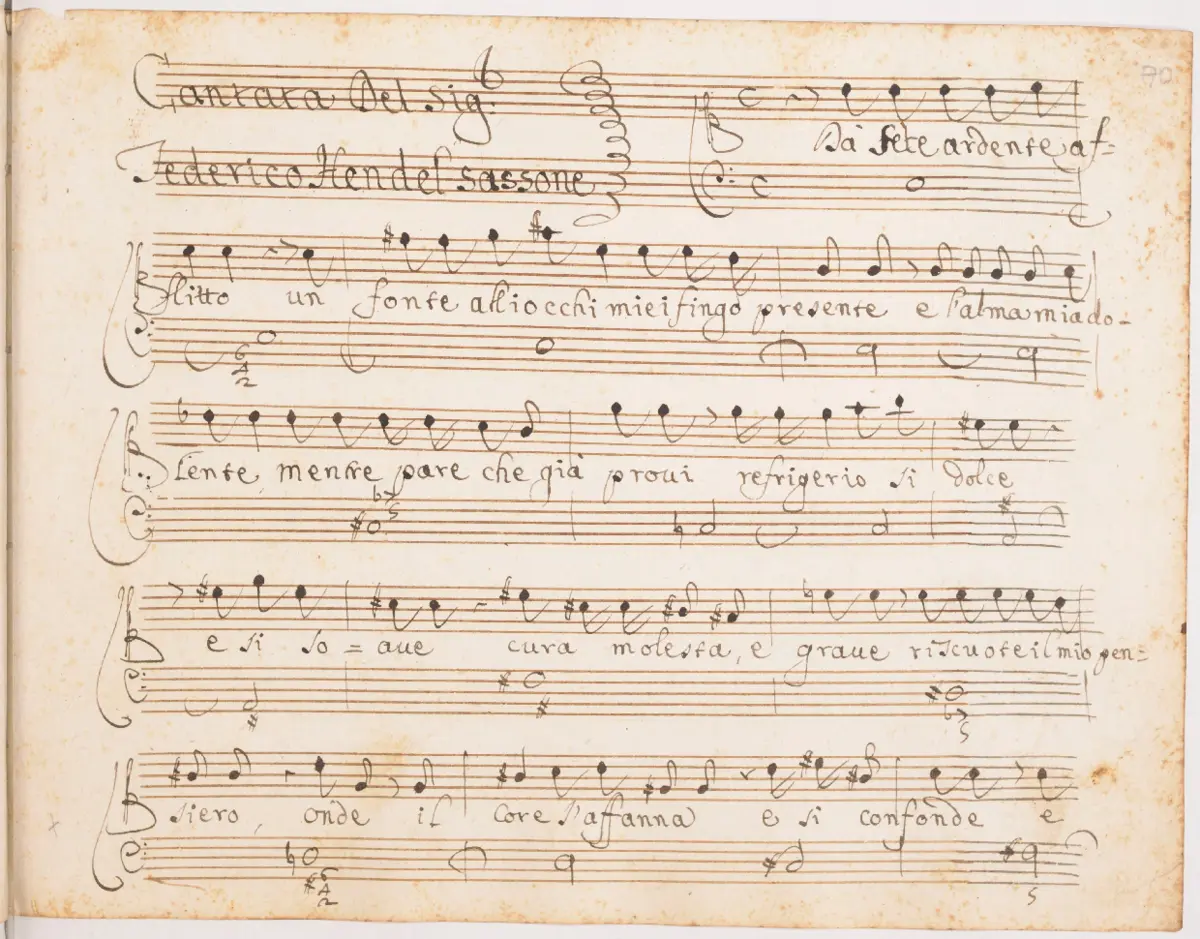 Cantata Del Sig.r
Federico Hendel sassone
Dà sete ardente af=
flitto un fonte alli occhi miei fingo presente e l'alma mia do-
lente, mentre pare che già proui refrigerio si dolce
e si so=aue cura molesta, e graue riscuote il mio pen=
siero, onde il core s'affanna e si confonde e